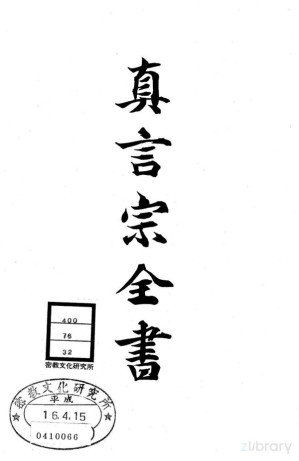 真言宗全書
400
76
32
密教文化研究所
☆密教文化研究所☆
平成
16.4.15
0410066
zlibrary